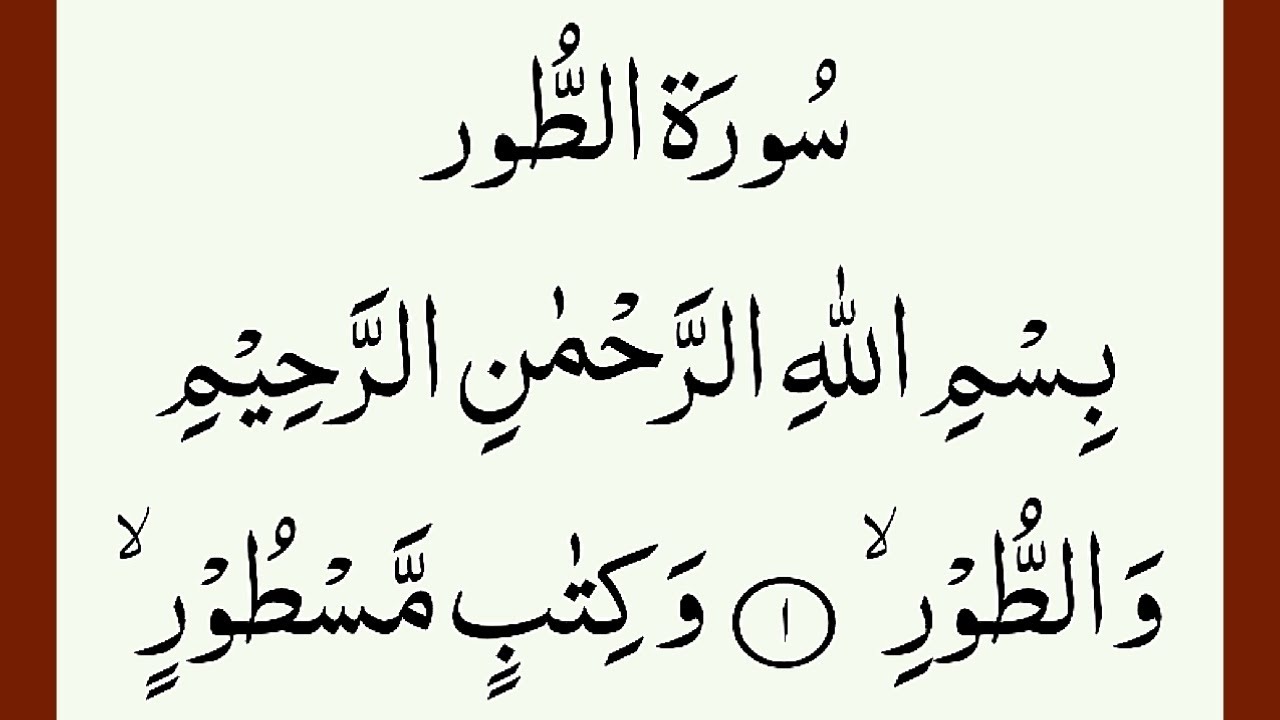 سُورَة الطُّور
بِسْمِ اللّٰهِ الرَّحْمٰنِ الرَّحِيْمِ
وَالطُّوْرِ ۙ ۝١ وَكِتٰبٍ مَّسْطُوْرٍ ۙ